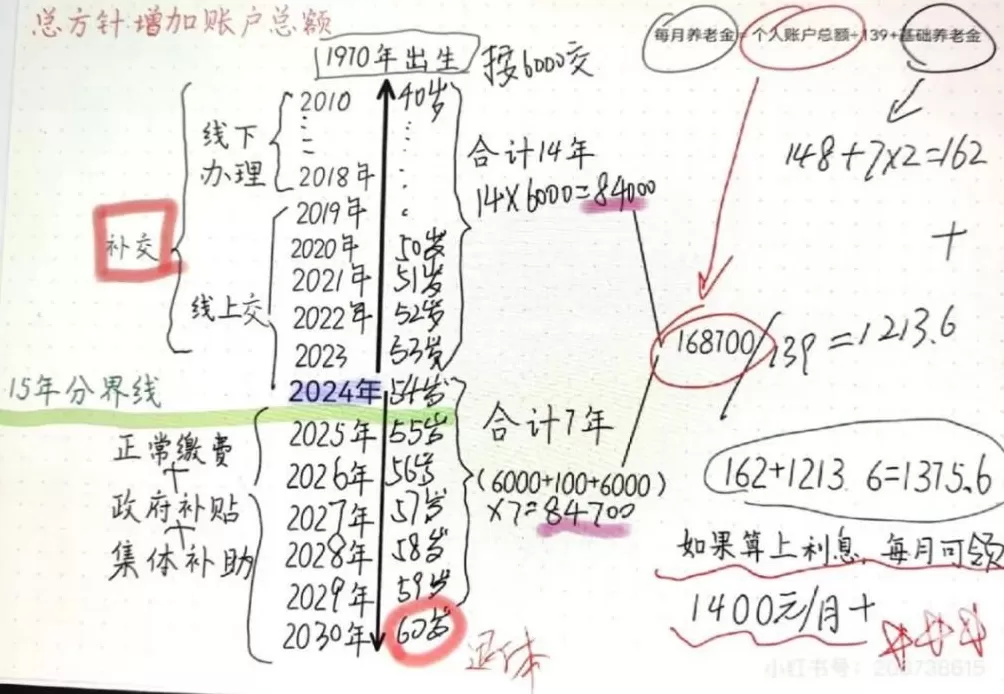 总方针增加账户总额
每月养老金=个人账户总额÷139+基础养老金
1970年出生
按6000交
2010
40岁
线下
办理
2018年
2019年
补交
2020年
50岁
2021年
51岁
线上交
2022年
52岁
2023
53岁
合计14年
14×6000=84000
148+7×2=162
+
168700/139=1213.6
15年分界线
2024年
54岁
2025年
55岁
正常缴费
+
2026年
56岁
政府补贴
+
2027年
57岁
集体补助
2028年
58岁
2029年
59岁
2030年
60岁
退休
合计7年
(6000+100+6000)
×7=84700
162+1213 6=1375.6
如果算上利息,每月可领
1400元/月+